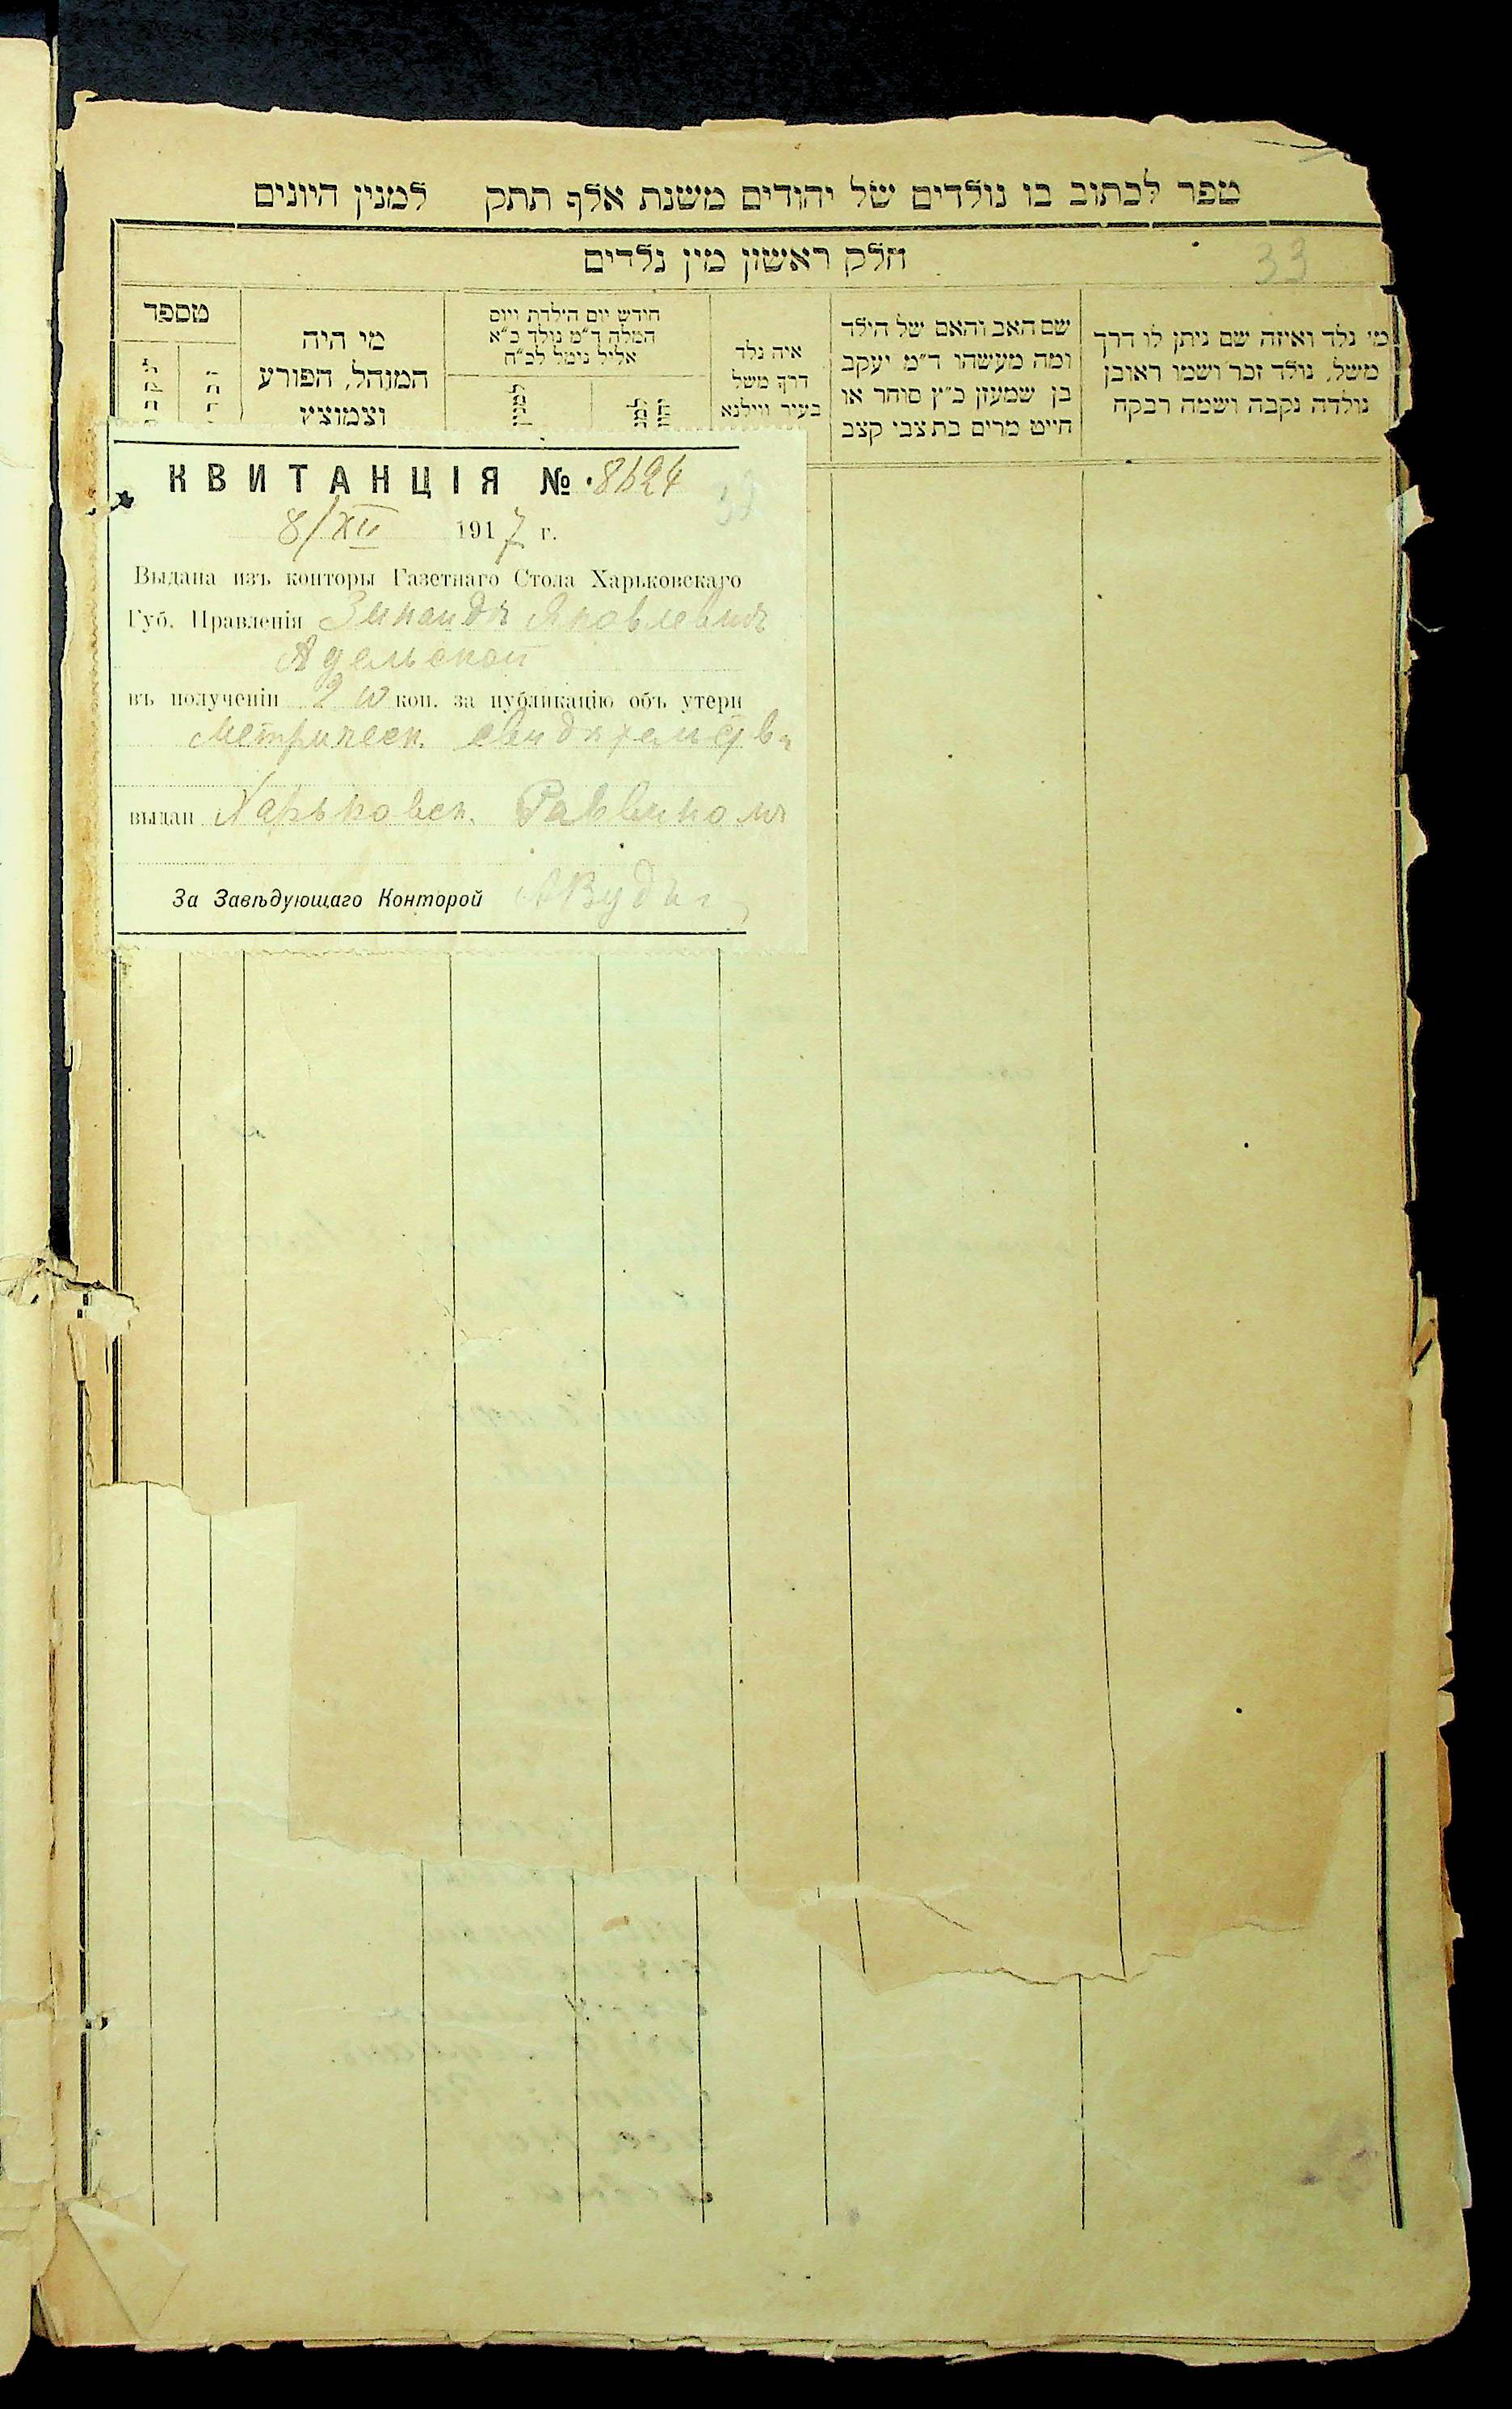 ספר לכתוב בו נולדים של יהודים משנת אלף תתק למנין היונים
חלק ראשון מין נלדים
33
מי נלד ואיזה שם ניתן לו דרך
משל, נולד זכר ושמו ראובן
נולדה נקבה ושמה רבקה
שם האב והאם של הילד
ומה מעשהו ד״מ יעקב
בן שמעון כ״ץ סוחר או
חייט מרים בת צבי קצב
איה נלד
דרך משל
בעיר ווילנא
חודש יום הילדת ויום
המלה ד״מ נולד כ״א
אליל נימל לכ״ח
מי היה
המוהל, הפורע
וצמוצץ
מספר
КВИТАНЦІЯ № 8624
8/XII 1917 г.
Выдана изъ конторы Газетнаго Стола Харьковскаго
Губ. Правленія Зинаидѣ Яковлевнѣ
Адельской
въ полученіи 2 коп. за публикацію объ утери
Метрическ. свидѣтельства
выдан Харьковск. Раввиномъ
За Завѣдующаго Конторой